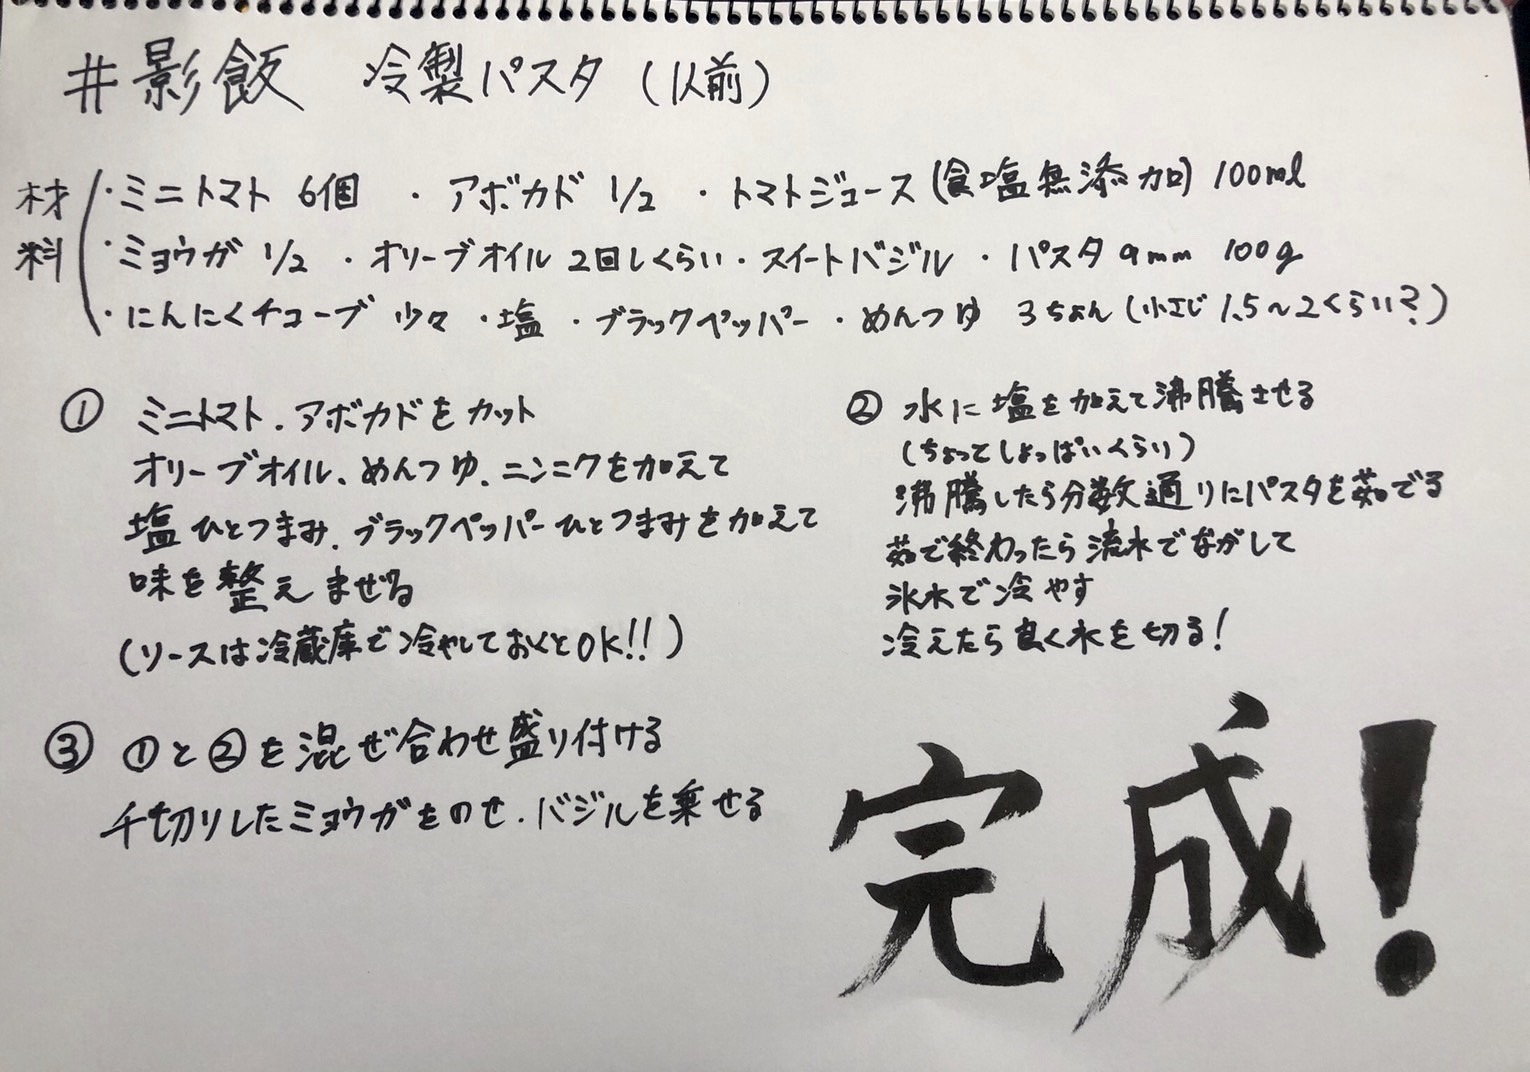 #影飯 冷製パスタ (1人前)
材料
・ミニトマト 6個 ・アボカド 1/2 ・トマトジュース(食塩無添加) 100ml
・ミョウガ 1/2 ・オリーブオイル 2回しくらい・スイートバジル ・パスタ 9mm 100g
・にんにくチューブ 少々 ・塩 ・ブラックペッパー ・めんつゆ 3ちょん (小さじ 1.5〜2くらい?)
① ミニトマト、アボカドをカット
オリーブオイル、めんつゆ、ニンニクを加えて
塩ひとつまみ、ブラックペッパーひとつまみを加えて
味を整えまぜる
(ソースは冷蔵庫で冷やしておくとOK!!)
② 水に塩を加えて沸騰させる
(ちょってしょっぱいくらい)
沸騰したら分数通りにパスタを茹でる
茹で終わったら流水でながして
氷水で冷やす
冷えたら良く水を切る!
③ ①と②を混ぜ合わせ盛り付ける
千切りしたミョウガをのせ、バジルを乗せる
完成!